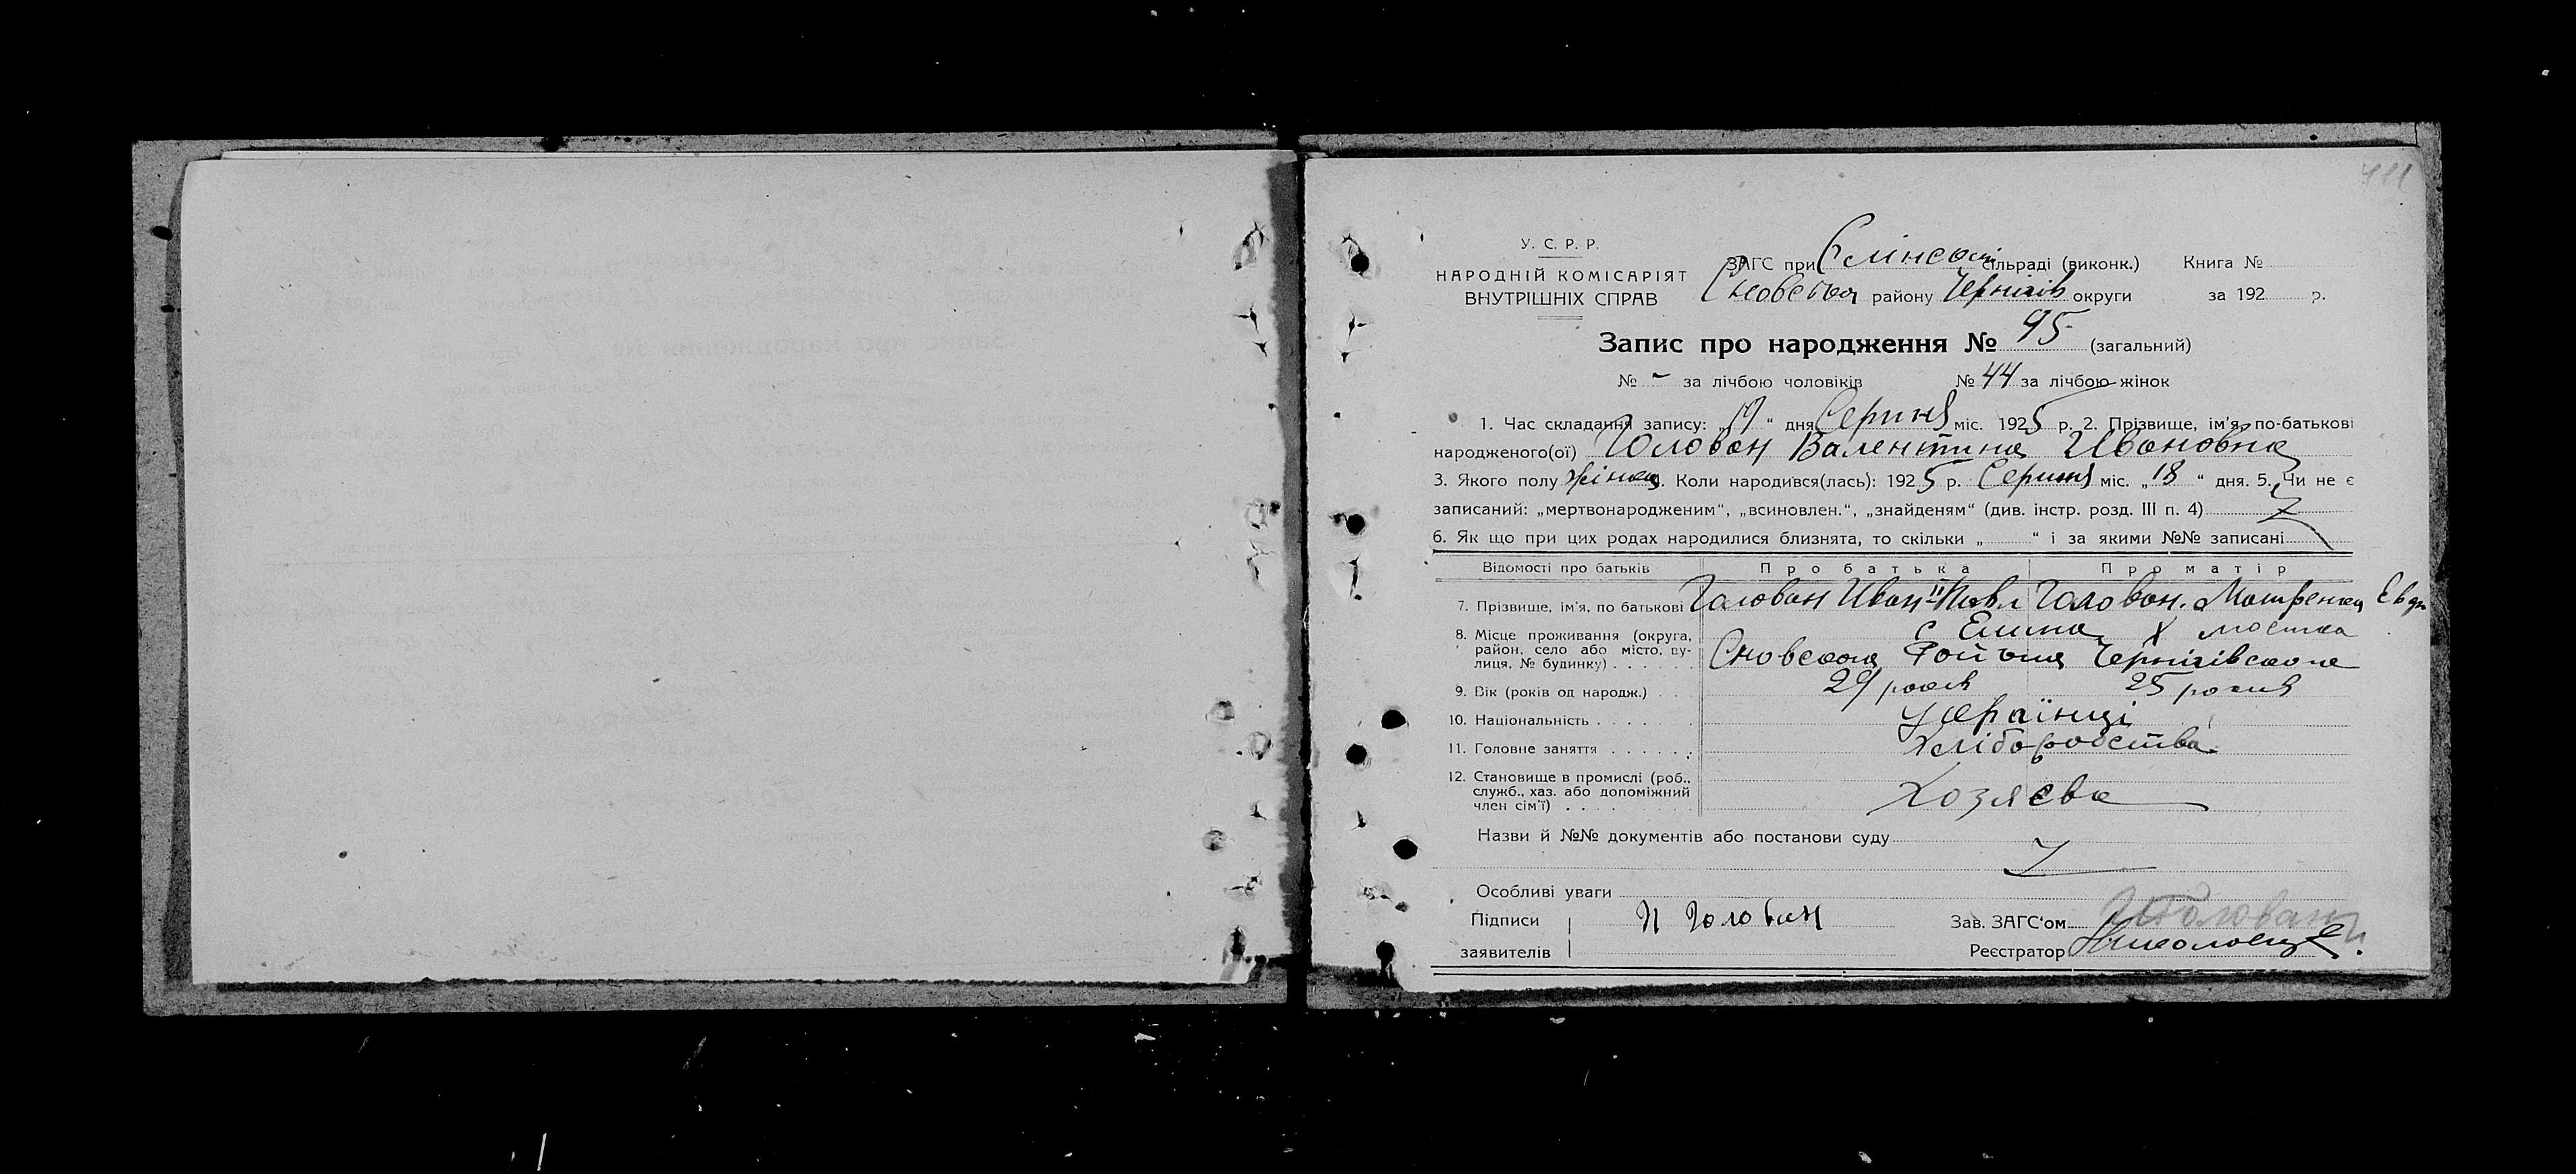 У. С. Р. Р.
НАРОДНІЙ КОМІСАРІЯТ
ВНУТРІШНІХ СПРАВ
ЗАГС при Єлінской сільраді (виконк.) Книга №
Сновського району Чернігів округи за 192 р.
Запис про народження № 95 (загальний)
№ - за лічбою чоловіків № 44 за лічбою жінок
1. Час складання запису: „19“ дня Серпня міс. 1925 р. 2. Прізвище, ім'я, по-батькові
народженого(ої) Голован Валентина Ивановна
3. Якого полу жіноч. Коли народився(лась): 1925 р. Серпня міс. „18“ дня. 5. Чи не є
записаний: „мертвонародженим“, „всиновлен.“, „знайденям“ (див. інстр. розд. III п. 4)
6. Як що при цих родах народилися близнята, то скільки „ “ і за якими №№ записані
Відомості про батьків Про батька Про матір
7. Прізвище, ім'я, по батькові Голован Иван II Павл Голован Мотренка Евдо
8. Місце проживання (округа, район, село або місто, вулиця, № будинку) с Елина х мостка
Сновского Району Чернігівского
9. Вік (років од народж.) 29 років 25 років
10. Національність українці
11. Головне заняття Хліборобства
12. Становище в промислі (роб., служб., хаз. або допоміжний член сім'ї) Хозяєва
Назви й №№ документів або постанови суду
Особливі уваги
Підписи И Голован Зав. ЗАГС'ом Голован
заявителів Реєстратор